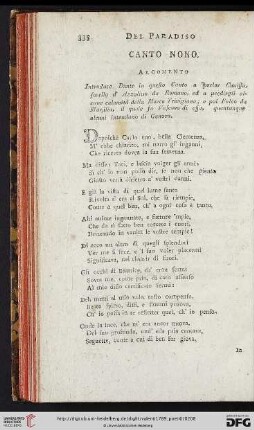 338 DEL PARADISO
CANTO NONO.
ARGOMENTO
Introduce Dante in questo Canto a parlar Cunizza,
sorella d' Azzolino da Romano, ed a predirgli al-
cune calamità della Marca Trivigiana, e poi Folco da
Marsilia, il quale fu Vescovo di essa
alcuni intendono di Genova.
Dapoichè Carlo tuo, bella Clemenza,
M' ebbe chiarito, mi narrò gl' inganni,
Che ricever dovea la sua semenza.
Ma disse: Taci, e lascia volger gli anni:
Sì ch' io non posso dir, se non che pianto
Giusto verrà dirietro a' vostri danni.
E già la vita di quel lume santo
Rivolta s' era al Sol, che la riempie,
Come a quel ben, ch' a ogni cosa è tanto.
Ahi anime ingannate, e fatture empie,
Che da sì fatto ben torcete i cuori,
Drizzando in vanità le vostre tempie!
Ed ecco un altro di quegli splendori
Ver me si fece, e 'l suo voler piacermi
Significava, nel chiarir di fuori.
Gli occhi di Beatrice, ch' eran fermi
Sovra me, come pria, di caro assenso
Al mio disio certificato fermi.
Deh metti al mio voler tosto compenso,
Beato spirto, dissi, e fammi pruova,
Ch' io possa in te reflettere quel, ch' io penso.
Onde la luce, che m' era ancor nuova,
Del suo profondo, ond' ella pria cantava,
Seguette, come a cui di ben far giova,
In